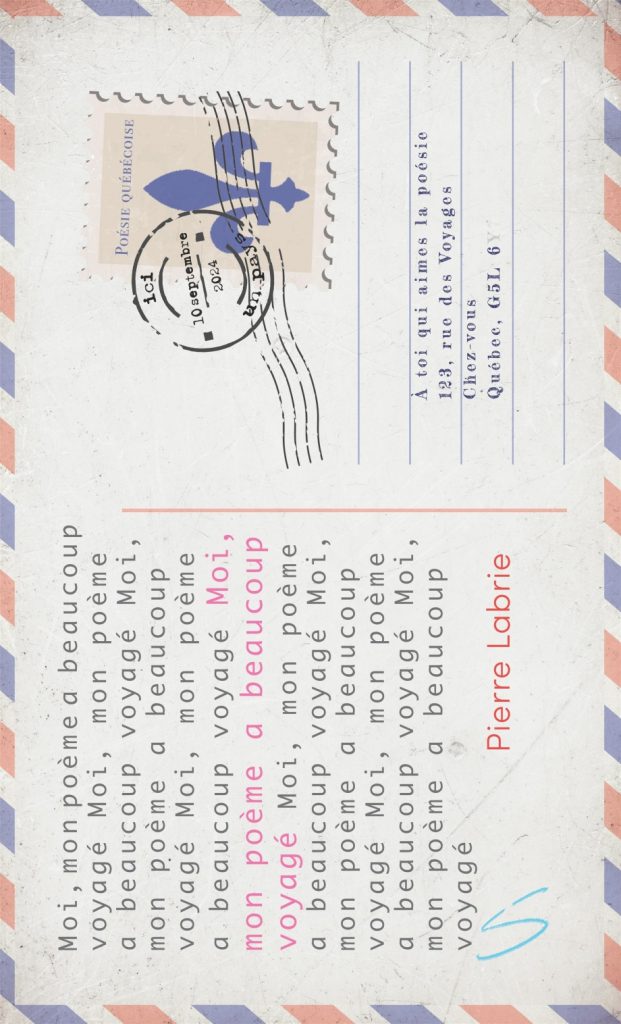 Moi, mon poème a beaucoup
voyagé Moi, mon poème
a beaucoup voyagé Moi,
mon poème a beaucoup
voyagé Moi, mon poème
a beaucoup voyagé Moi,
mon poème a beaucoup
voyagé Moi, mon poème
a beaucoup voyagé Moi,
mon poème a beaucoup
voyagé Moi, mon poème
a beaucoup voyagé Moi,
mon poème a beaucoup
voyagé
Pierre Labrie
POÉSIE QUÉBÉCOISE
ici
10 septembre
2024
un pays
À toi qui aimes la poésie
123, rue des Voyages
Chez-vous
Québec, G5L 6Y